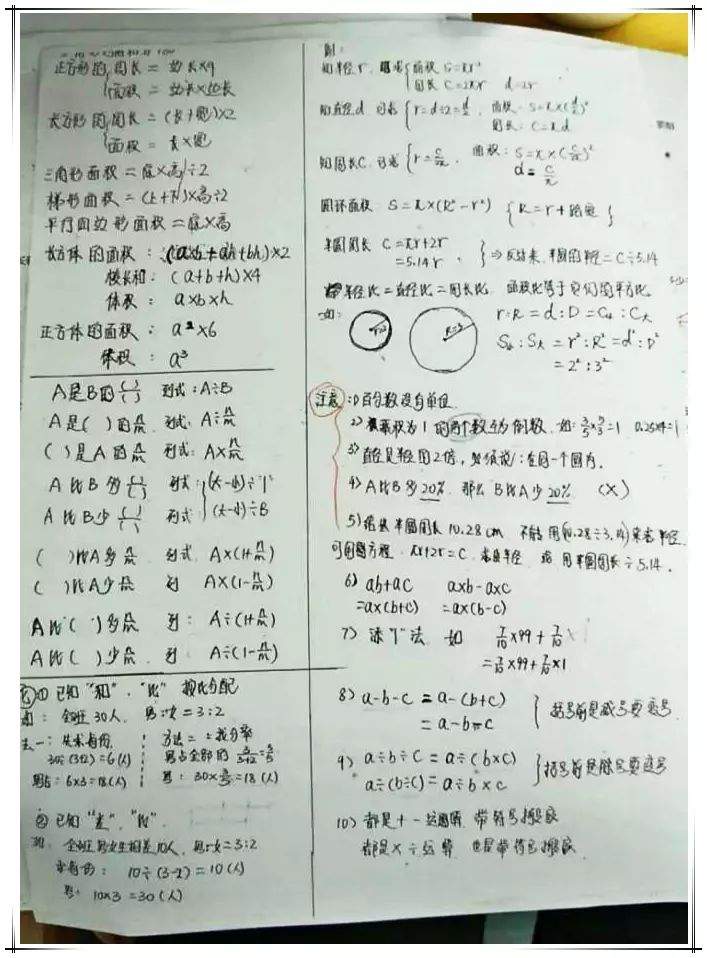 正方形的周长 = 边长×4
面积 = 边长×边长
长方形的周长 = (长+宽)×2
面积 = 长×宽
三角形面积 = 底×高÷2
梯形面积 = (上+下)×高÷2
平行四边形面积 = 底×高
长方体的面积: (a×b+ah+bh)×2
棱长和: (a+b+h)×4
体积: a×b×h
正方体的面积: a²×6
体积: a³
A是B的( )/( ) 列式: A÷B
A是( )的n/m 列式: A÷n/m
( )是A的n/m 列式: A×n/m
A比B多( )/( ) 列式: (大-小)÷"1"
A比B少( )/( ) 列式: (大-小)÷B
( )比A多n/m 列式 A×(1+n/m)
( )比A少n/m 列 A×(1-n/m)
A比( )多n/m 列: A÷(1+n/m)
A比( )少n/m 列: A÷(1-n/m)
① 已知"和"、"比" 按比分配
全班30人, 男:女=3:2
法一: 先求每份
30÷(3+2)=6(人)
男占: 6×3=18(人)
方法二: 找分率
男占全部的 3/(3+2)=3/5
男: 30×3/5=18(人)
② 已知"差"、"比"
如: 全班男女生相差10人, 男:女=3:2
求每份: 10÷(3-2)=10(人)
男: 10×3=30(人)
圆:
知半径r, 可求 面积 S=πr²
周长 C=2πr d=2r
知直径d 可求 r=d÷2=d/2, 面积: S=π×(d/2)²
周长: C=πd
知周长C, 可求 r=C/2π, 面积: S=π×(C/2π)²
d=C/π
圆环面积 S=π×(R²-r²) {R=r+路宽}
半圆周长 C=πr+2r
=5.14r
⇒反过来, 半圆的半径=C÷5.14
半径比=直径比=周长比, 面积比等于它们的平方比
如: r=2 R=3
r:R=d:D=C小:C大
S小:S大=r²:R²=d²:D²
=2²:3²
注意: 1) 百分数没有单位.
2) 乘积为1的两个数互为倒数, 如: 3/5×5/3=1 0.25×4=1
3) 直径是半径的2倍, 必须说: 在同一个圆内.
4) A比B多20%, 那么B比A少20% (×)
5) 给出半圆周长10.28cm 不能用(10.28÷3.14)来求半径,
可用方程: πr+2r=C, 求出半径, 或 用半圆周长÷5.14.
6) ab+ac a×b-a×c
=a×(b+c) =a×(b-c)
7) 添"1"法 如 7/10×99+7/10
=7/10×99+7/10×1
8) a-b-c=a-(b+c)
=a-b-c
括号前是减号要变号
9) a÷b÷c=a÷(b×c)
a÷(b÷c)=a÷b×c
括号前是除号要变号
10) 都是+-运算, 带符号搬家
都是×÷运算, 也是带符号搬家